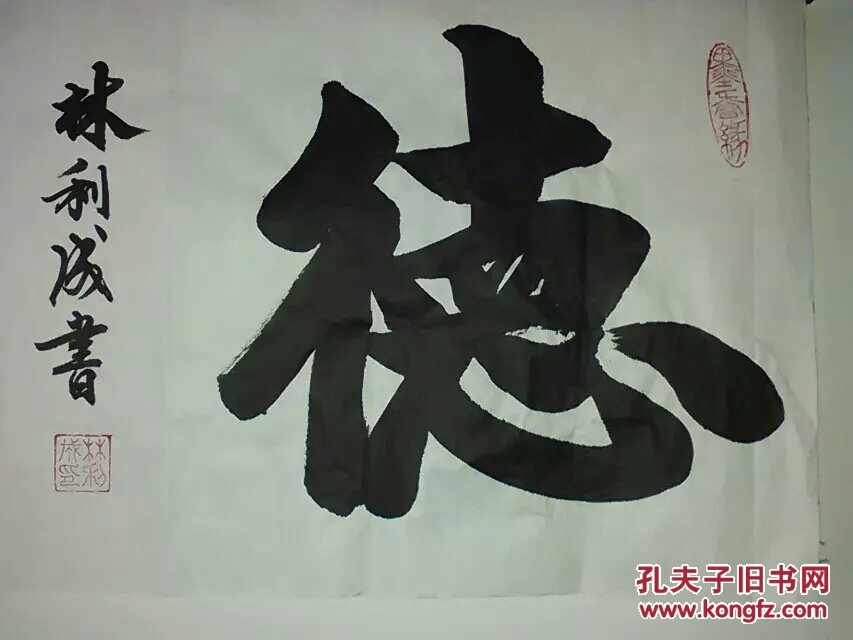 德
林利成書
林利成印
孔夫子旧书网
www.kongfz.com